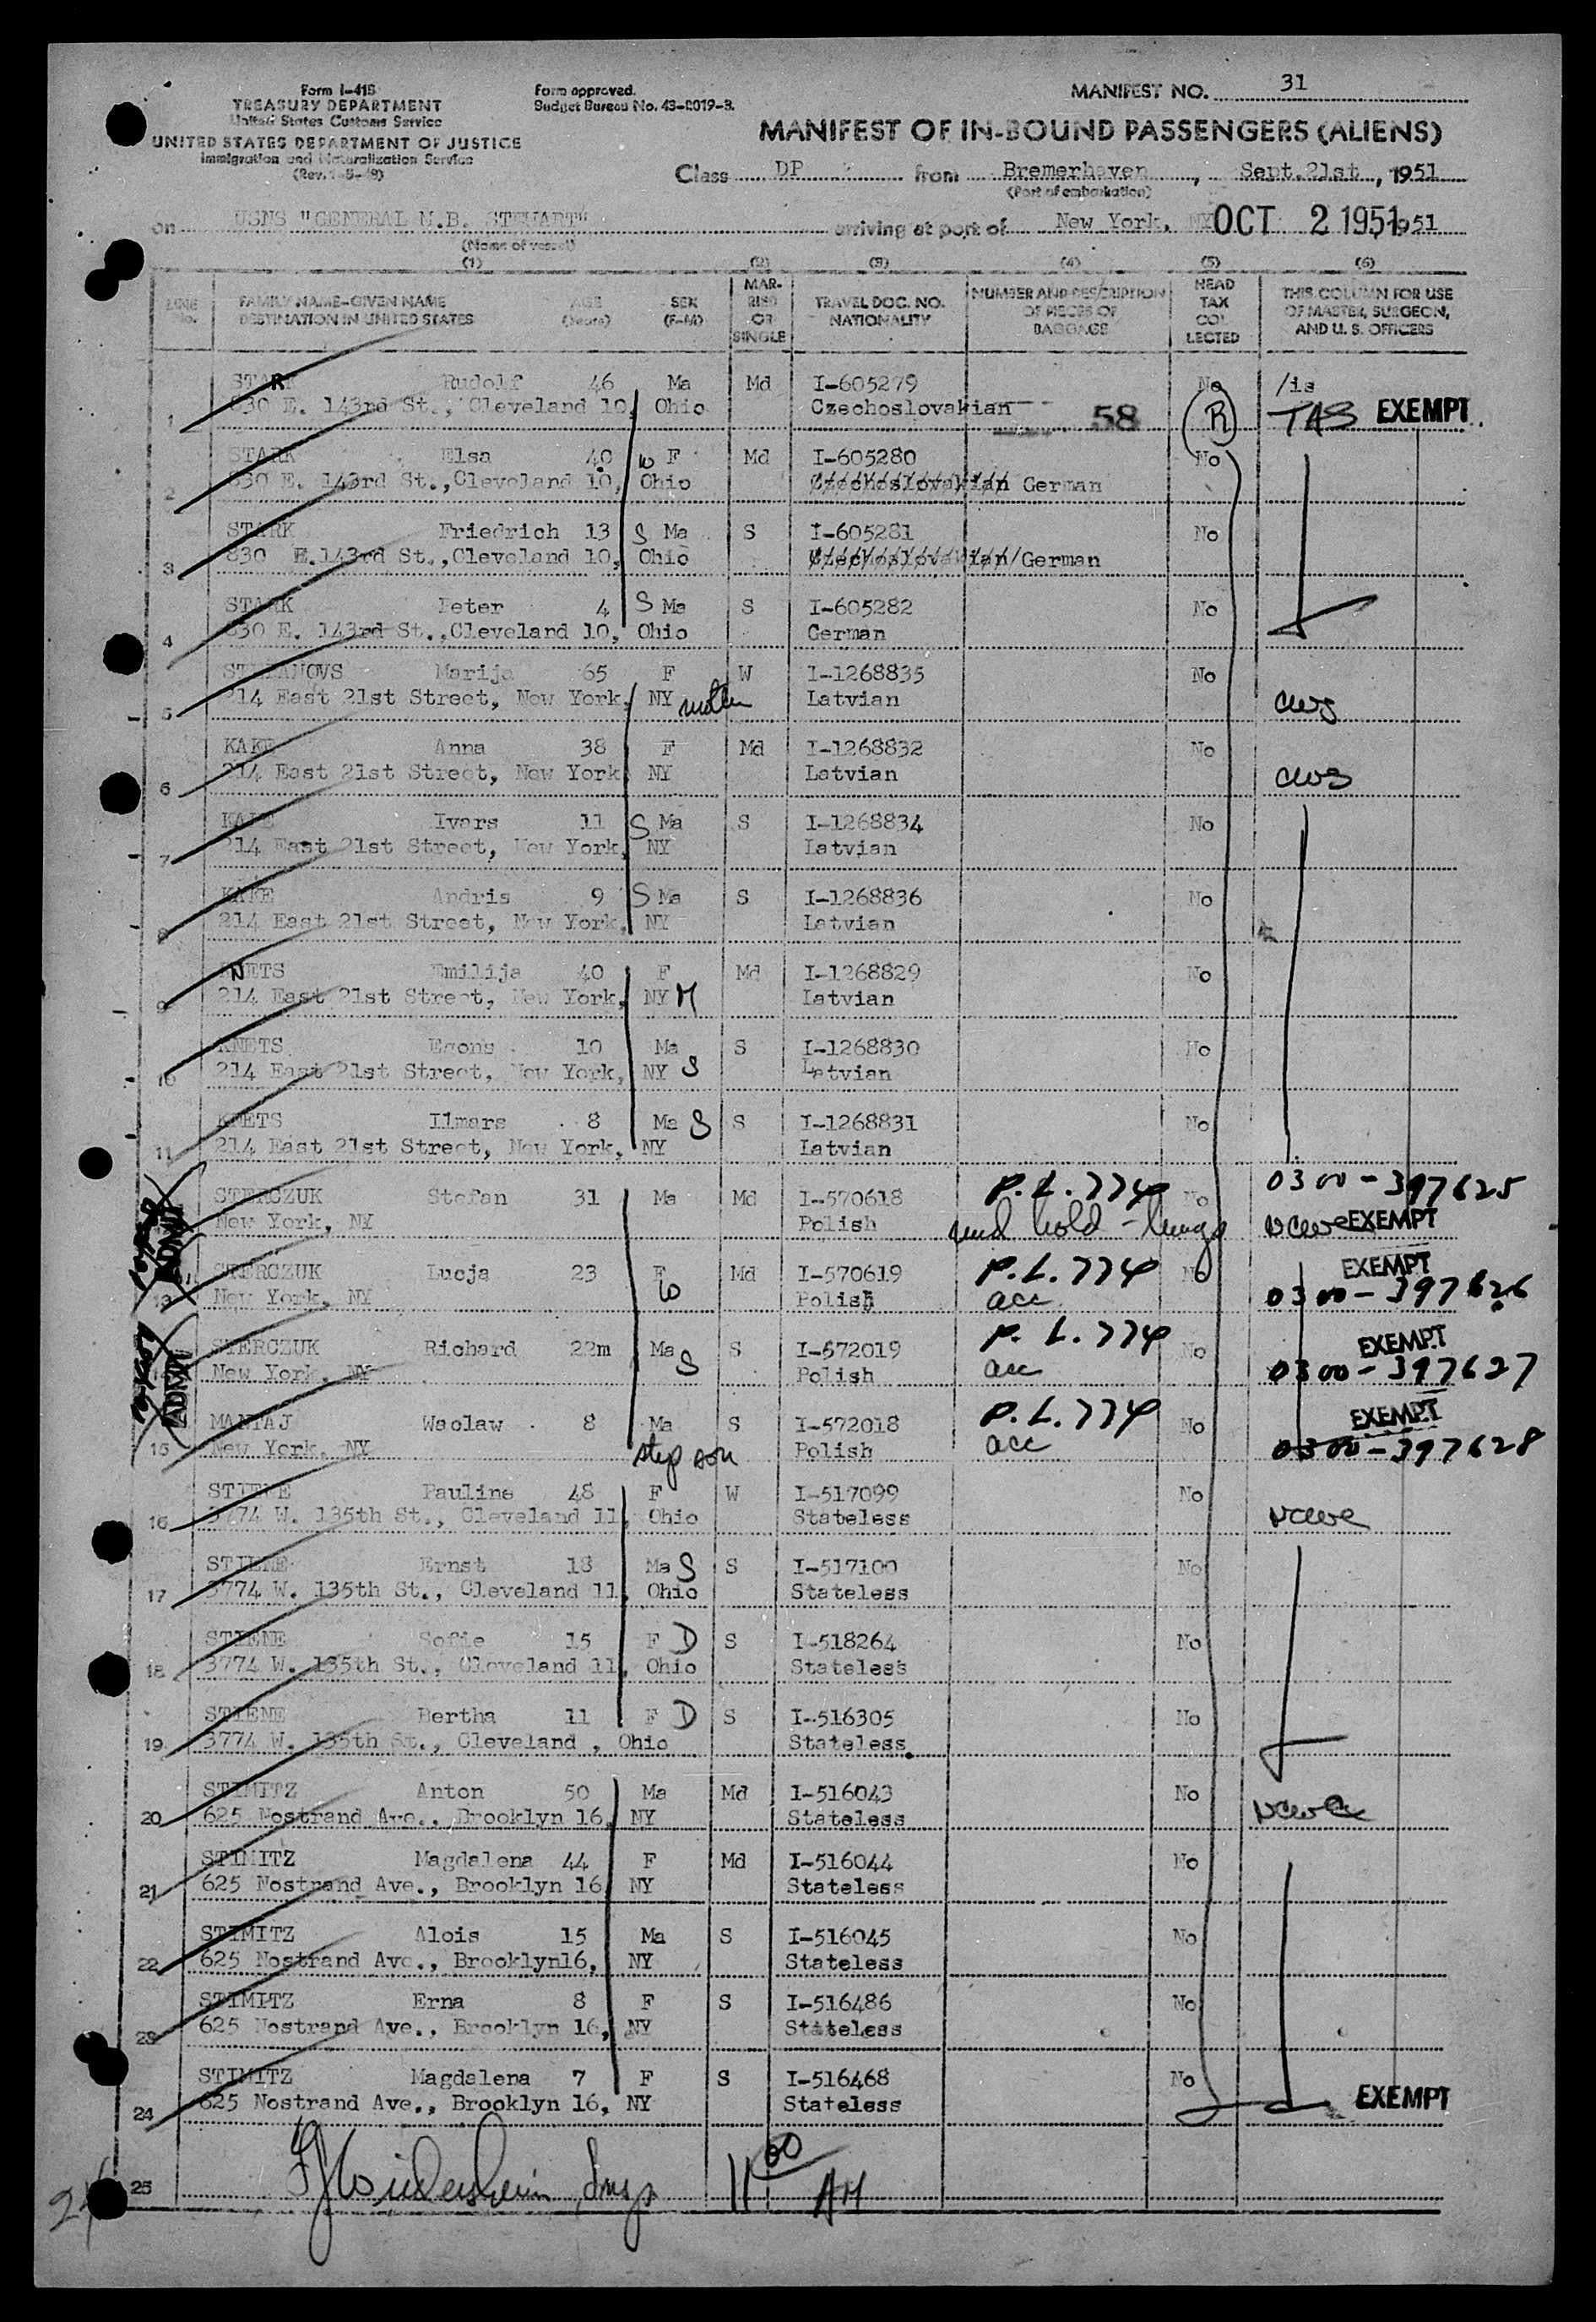 Form I-418
TREASURY DEPARTMENT
United States Customs Service
UNITED STATES DEPARTMENT OF JUSTICE
Immigration and Naturalization Service
Form approved.
Budget Bureau No. 43-R019-3.
MANIFEST NO. 31
MANIFEST OF IN-BOUND PASSENGERS (ALIENS)
Class DP from Bremerhaven, Sept.21st, 1951
(Port of embarkation)
on USNS "GENERAL M.B. STEWART" arriving at port of New York, NY OCT 2 1951 1951
(Name of vessel)
(1) (2) (3) (4) (5) (6)
LINE No. FAMILY NAME-GIVEN NAME DESTINATION IN UNITED STATES AGE (Years) SEX (F-M) MAR-RIED OR SINGLE TRAVEL DOC. NO. NATIONALITY NUMBER AND DESCRIPTION OF PIECES OF BAGGAGE HEAD TAX COL-LECTED THIS COLUMN FOR USE OF MASTER, SURGEON, AND U. S. OFFICERS
STARK Rudolf 46 Ma Md I-605279 No /is
1 830 E. 143rd St., Cleveland 10, Ohio Czechoslovakian 58 R TAS EXEMPT
STARK Elsa 40 W F Md I-605280 No
2 830 E. 143rd St.,Cleveland 10, Ohio Czechoslovakian German
STARK Friedrich 13 S Ma S I-605281 No
3 830 E.143rd St.,Cleveland 10, Ohio Czechoslovakian/German
STARK Peter 4 S Ma S I-605282 No
4 830 E. 143rd St.,Cleveland 10, Ohio German
Marija 65 F W I-1268835 No
5 214 East 21st Street, New York, NY mother Latvian cws
KAKE Anna 38 F Md I-1268832 No
6 214 East 21st Street, New York NY Latvian cws
KAKE Ivars 11 S Ma S I-1268834 No
7 214 East 21st Street, New York, NY Latvian
KAKE Andris 9 S Ma S I-1268836 No
8 214 East 21st Street, New York, NY Latvian
KNETS Emilija 40 F Md I-1268829 No
9 214 East 21st Street, New York, NY M Latvian
KNETS Egons 10 Ma S I-1268830 No
10 214 East 21st Street, New York, NY S Latvian
KNETS Ilmars 8 Ma S S I-1268831 No
11 214 East 21st Street, New York, NY Latvian
STERCZUK Stefan 31 Ma Md I-570618 P.L. 774 No 0300-397625
New York, NY Polish med hold - lungs EXEMPT
STERCZUK Lucja 23 F Md I-570619 P.L. 774 No EXEMPT
13 New York, NY W Polish acc 0300-397626
STERCZUK Richard 22m Ma S S I-572019 P.L. 774 No EXEMPT
14 New York, NY Polish acc 0300-397627
MANTAJ Waclaw 8 Ma S I-572018 P.L. 774 No EXEMPT
15 New York, NY step son Polish acc 0300-397628
STIENE Pauline 48 F W I-517099 No
16 3774 W. 135th St., Cleveland 11, Ohio Stateless
STIENE Ernst 18 Ma S S I-517100 No
17 3774 W. 135th St., Cleveland 11, Ohio Stateless
STIENE Sofie 15 F D S I-518264 No
18 3774 W. 135th St., Cleveland 11, Ohio Stateless
STIENE Bertha 11 F D S I-516305 No
19 3774 W. 135th St., Cleveland , Ohio Stateless
STIMITZ Anton 50 Ma Md I-516043 No
20 625 Nostrand Ave., Brooklyn 16, NY Stateless
STIMITZ Magdalena 44 F Md I-516044 No
21 625 Nostrand Ave., Brooklyn 16 NY Stateless
STIMITZ Alois 15 Ma S I-516045 No
22 625 Nostrand Ave., Brooklyn16, NY Stateless
STIMITZ Erna 8 F S I-516486 No
23 625 Nostrand Ave., Brooklyn 16, NY Stateless
STIMITZ Magdalena 7 F S I-516468 No
24 625 Nostrand Ave., Brooklyn 16, NY Stateless EXEMPT
25 11:00 AM